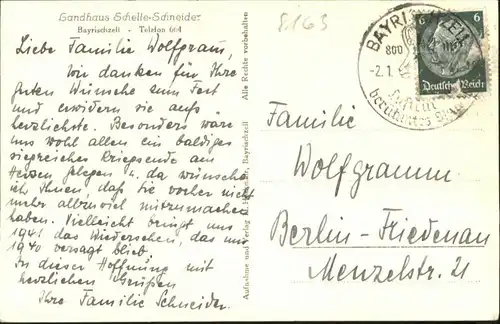 Landhaus Schelle-Schneider
Bayrischzell - Telefon 664
Liebe Familie Wolfgramm,
Wir danken für Ihre
guten Wünsche zum Fest
und erwidern sie aufs
herzlichste. Besonders wäre
uns wohl allen ein baldiges
siegreiches Kriegsende am
Herzen gelegen u. da wünsche
ich Ihnen, daß Sie vorher nicht
mehr allzuviel mitzumachen
haben. Vielleicht bringt uns
1941 das Wiedersehen, das uns
1940 versagt blieb.
In dieser Hoffnung mit
herzlichen Grüßen
Ihre Familie Schneider.
Alle Rechte vorbehalten
Aufnahme und Verlag Bayrischzell
8163
6 6
Deutsches Reich
800
-2.1.
Familie
Wolfgramm
Berlin-Friedenau
Menzelstr. 21